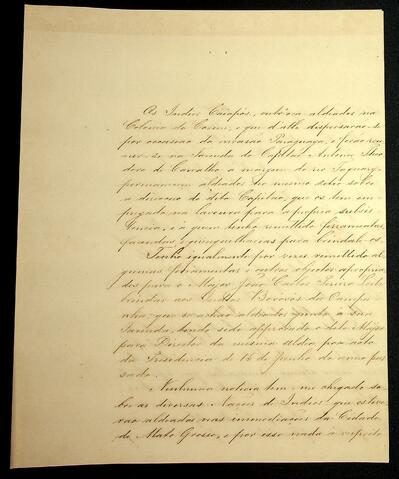 Os Indios Caiapós, outr'ora aldeados na
Colonia do Coxim, e que d'alli dispersarão-se
por occasião da invasão Paraguaya, e forão reu-
nir-se na Fazenda do Capitão Antonio Theo-
doro de Carvalho a margem do rio Taquary
permanecem aldeados no mesmo sitio sobre
a direcção do dito Capitão, que os tem em-
pregado na lavoura para a propria subsis-
tencia, e a quem tenho remettido ferramentas,
fazendas e quinquilharias para brindal-os.
Tenho igualmente por vezes remettido al-
gumas ferramentas e outros objectos apropria-
dos para o Major João Carlos Pereira Leite
brindar aos Indios Bororós da Campa-
nha que se achão aldeados junto a sua
Fazenda, tendo sido approvado o dito Major
para Director da mesma aldêa por acto
da Presidencia de 15 de Junho do anno pas-
sado.
Nenhuma noticia tem-me chegado so-
bre as diversas Nações de Indios que estive-
rão aldeados nas immediações da Cidade
de Mato Grosso, e por isso nada a respeito